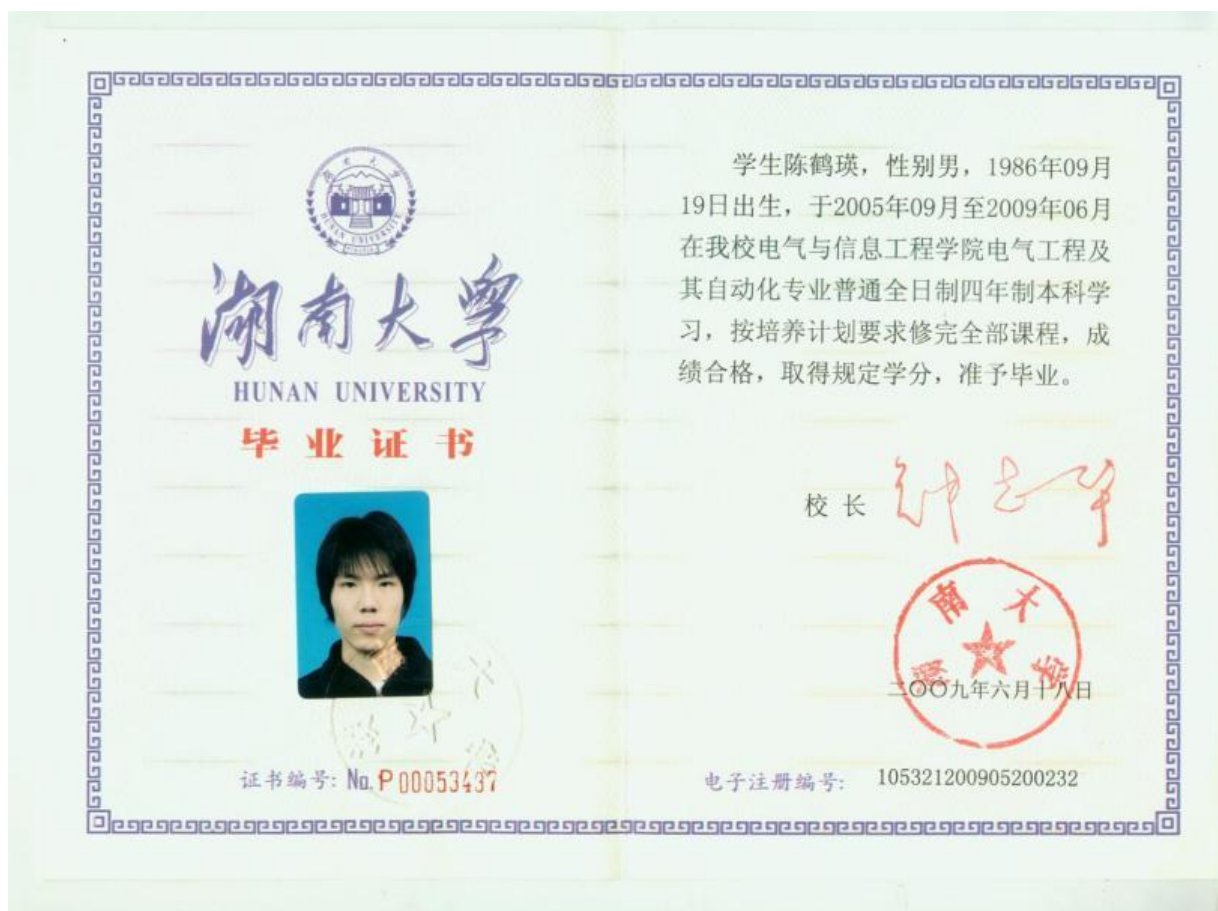 湖南大学
HUNAN UNIVERSITY
湖南大学
HUNAN UNIVERSITY
毕业证书
证书编号: No. P 00053437
学生陈鹤瑛，性别男，1986年09月
19日出生，于2005年09月至2009年06月
在我校电气与信息工程学院电气工程及
其自动化专业普通全日制四年制本科学
习，按培养计划要求修完全部课程，成
绩合格，取得规定学分，准予毕业。
校 长 钟志华
湖南大学
二〇〇九年六月十八日
电子注册编号: 105321200905200232